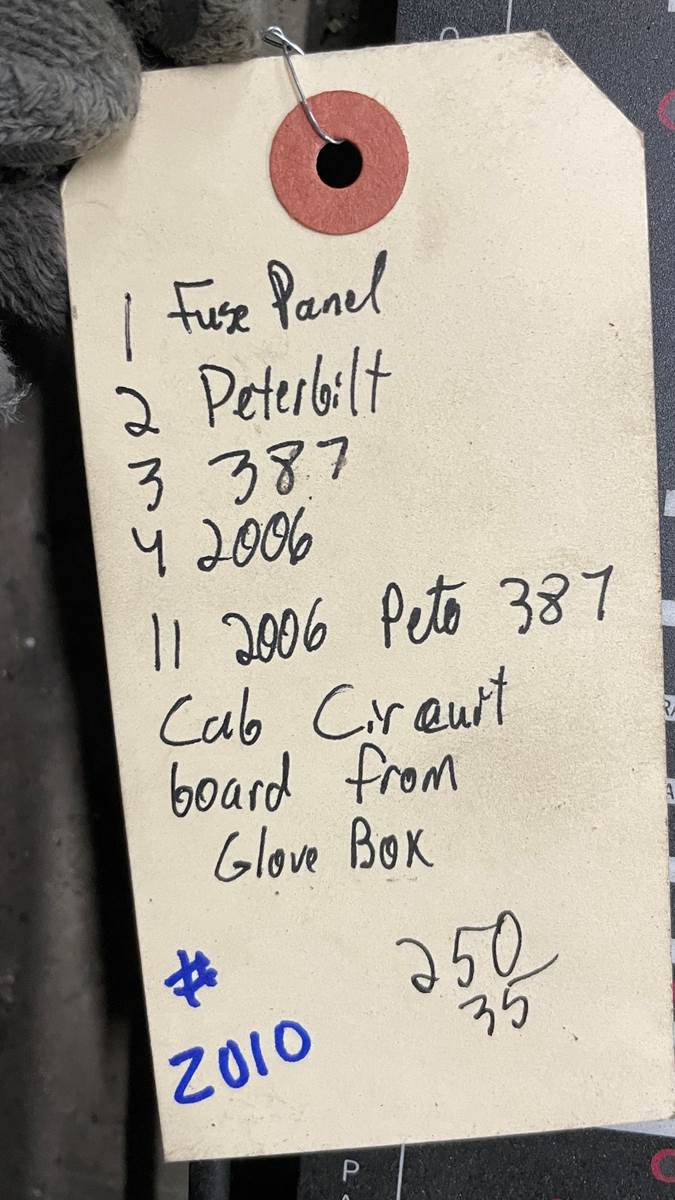 1 Fuse Panel
2 Peterbilt
3 387
4 2006
11 2006 Pete 387
Cab Circuit
board from
Glove Box
250
35
#
2010
P